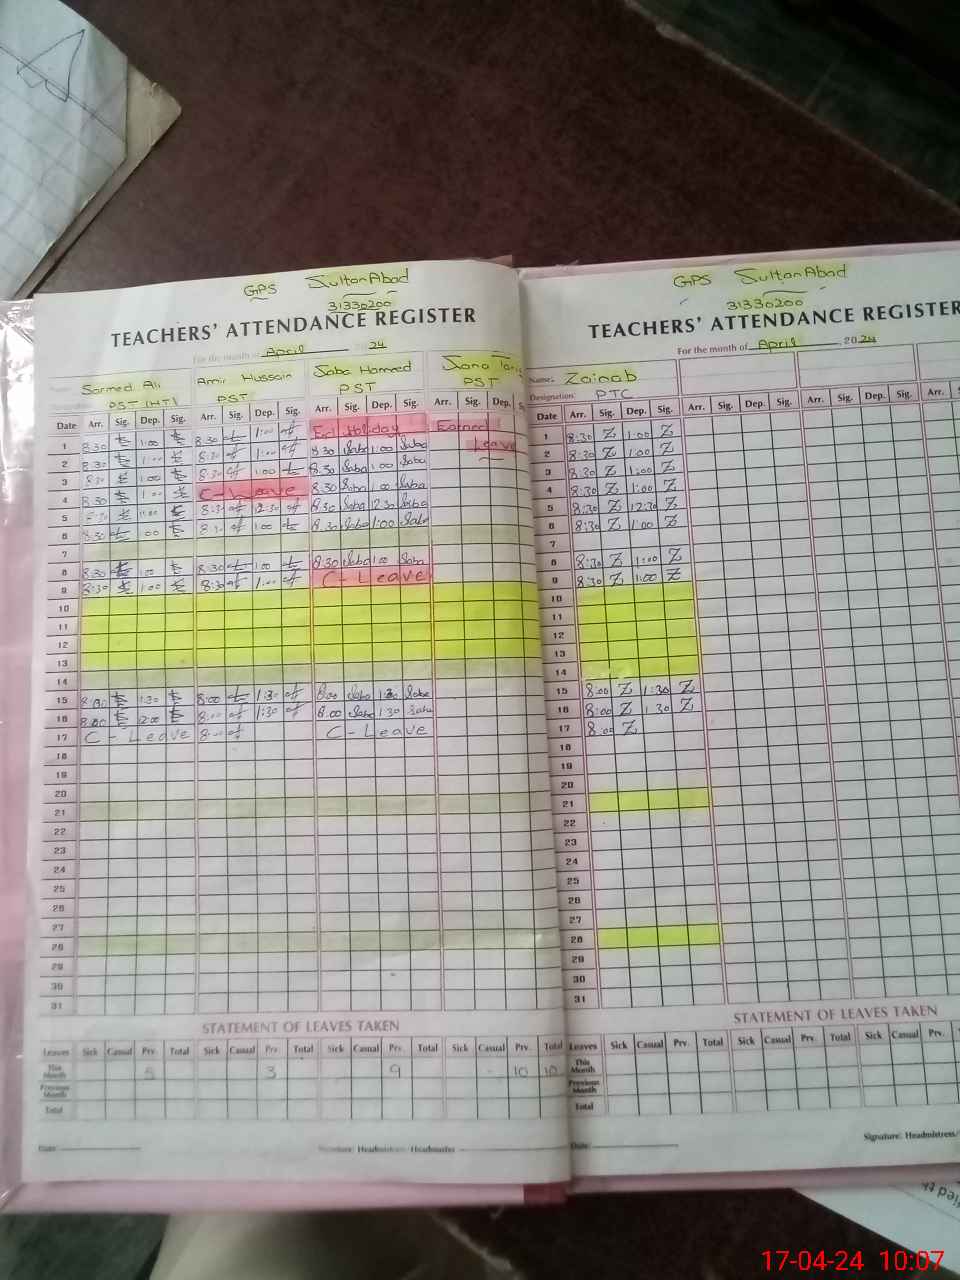 GPS Sultan Abad
31330200
TEACHERS' ATTENDANCE REGISTER
For the month of April 2024
Sarmed Ali Amir Hussain Saba Hameed Sana
PST (HT) PST PST PST
Date Arr. Sig. Dep. Sig. Arr. Sig. Dep. Sig. Arr. Sig. Dep. Sig. Arr. Sig. Dep.
Eid Holiday Earned
1 8:30 1:00 8:30 1:00 8:30 Saba 1:00 Saba Leave
2 8:30 1:00 8:30 1:00 8:30 Saba 1:00 Saba
3 8:30 1:00 8:30 1:00 8:30 Saba 1:00 Saba
4 8:30 1:00 C-Leave 8:30 Saba 1:00 Saba
5 8:30 1:00 8:30 12:30 8:30 Saba 12:30 Saba
6 8:30 1:00 8:30 1:00 8:30 Saba 1:00 Saba
7
8 8:30 1:00 8:30 1:00 8:30 Saba 1:00 Saba
9 8:30 1:00 8:30 1:00 C-Leave
10
11
12
13
14
15 8:00 1:30 8:00 1:30 8:00 Saba 1:30 Saba
16 8:00 2:00 8:00 1:30 8:00 Saba 1:30 Saba
17 C-Leave 8:00 C-Leave
18
19
20
21
22
23
24
25
26
27
28
29
30
31
STATEMENT OF LEAVES TAKEN
Leaves Sick Casual Prv. Total Sick Casual Prv. Total Sick Casual Prv. Total Sick Casual Prv. Total
This Month 5 3 9 - 10 10
Previous Month
Total
Date: Signature: Headmistress/Headmaster
GPS Sultan Abad
31330200
TEACHERS' ATTENDANCE REGISTER
For the month of April, 2024
Name: Zainab
Designation: PTC
Date Arr. Sig. Dep. Sig. Arr. Sig. Dep. Sig. Arr. Sig. Dep. Sig. Arr. S
1 8:30 Z 1:00 Z
2 8:30 Z 1:00 Z
3 8:30 Z 1:00 Z
4 8:30 Z 1:00 Z
5 8:30 Z 12:30 Z
6 8:30 Z 1:00 Z
7
8 8:30 Z 1:00 Z
9 8:30 Z 1:00 Z
10
11
12
13
14
15 8:00 Z 1:30 Z
16 8:00 Z 1:30 Z
17 8:00 Z
18
19
20
21
22
23
24
25
26
27
28
29
30
31
STATEMENT OF LEAVES TAKEN
Leaves Sick Casual Prv. Total Sick Casual Prv. Total Sick Casual
This Month
Previous Month
Total
Date: Signature: Headmistress/
17-04-24 10:07